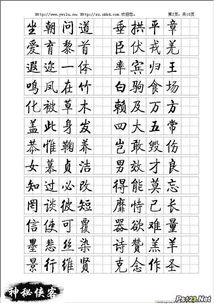 坐朝问道 垂拱平章
爱育黎首 臣伏戎羌
遐迩一体 率宾归王
鸣凤在树 白驹食场
化被草木 赖及万方
盖此身发 四大五常
恭惟鞠养 岂敢毁伤
女慕贞洁 男效才良
知过必改 得能莫忘
罔谈彼短 靡恃己长
信使可覆 器欲难量
墨悲丝染 诗赞羔羊
景行维贤 克念作圣
神秘侠客
Ps123.Net